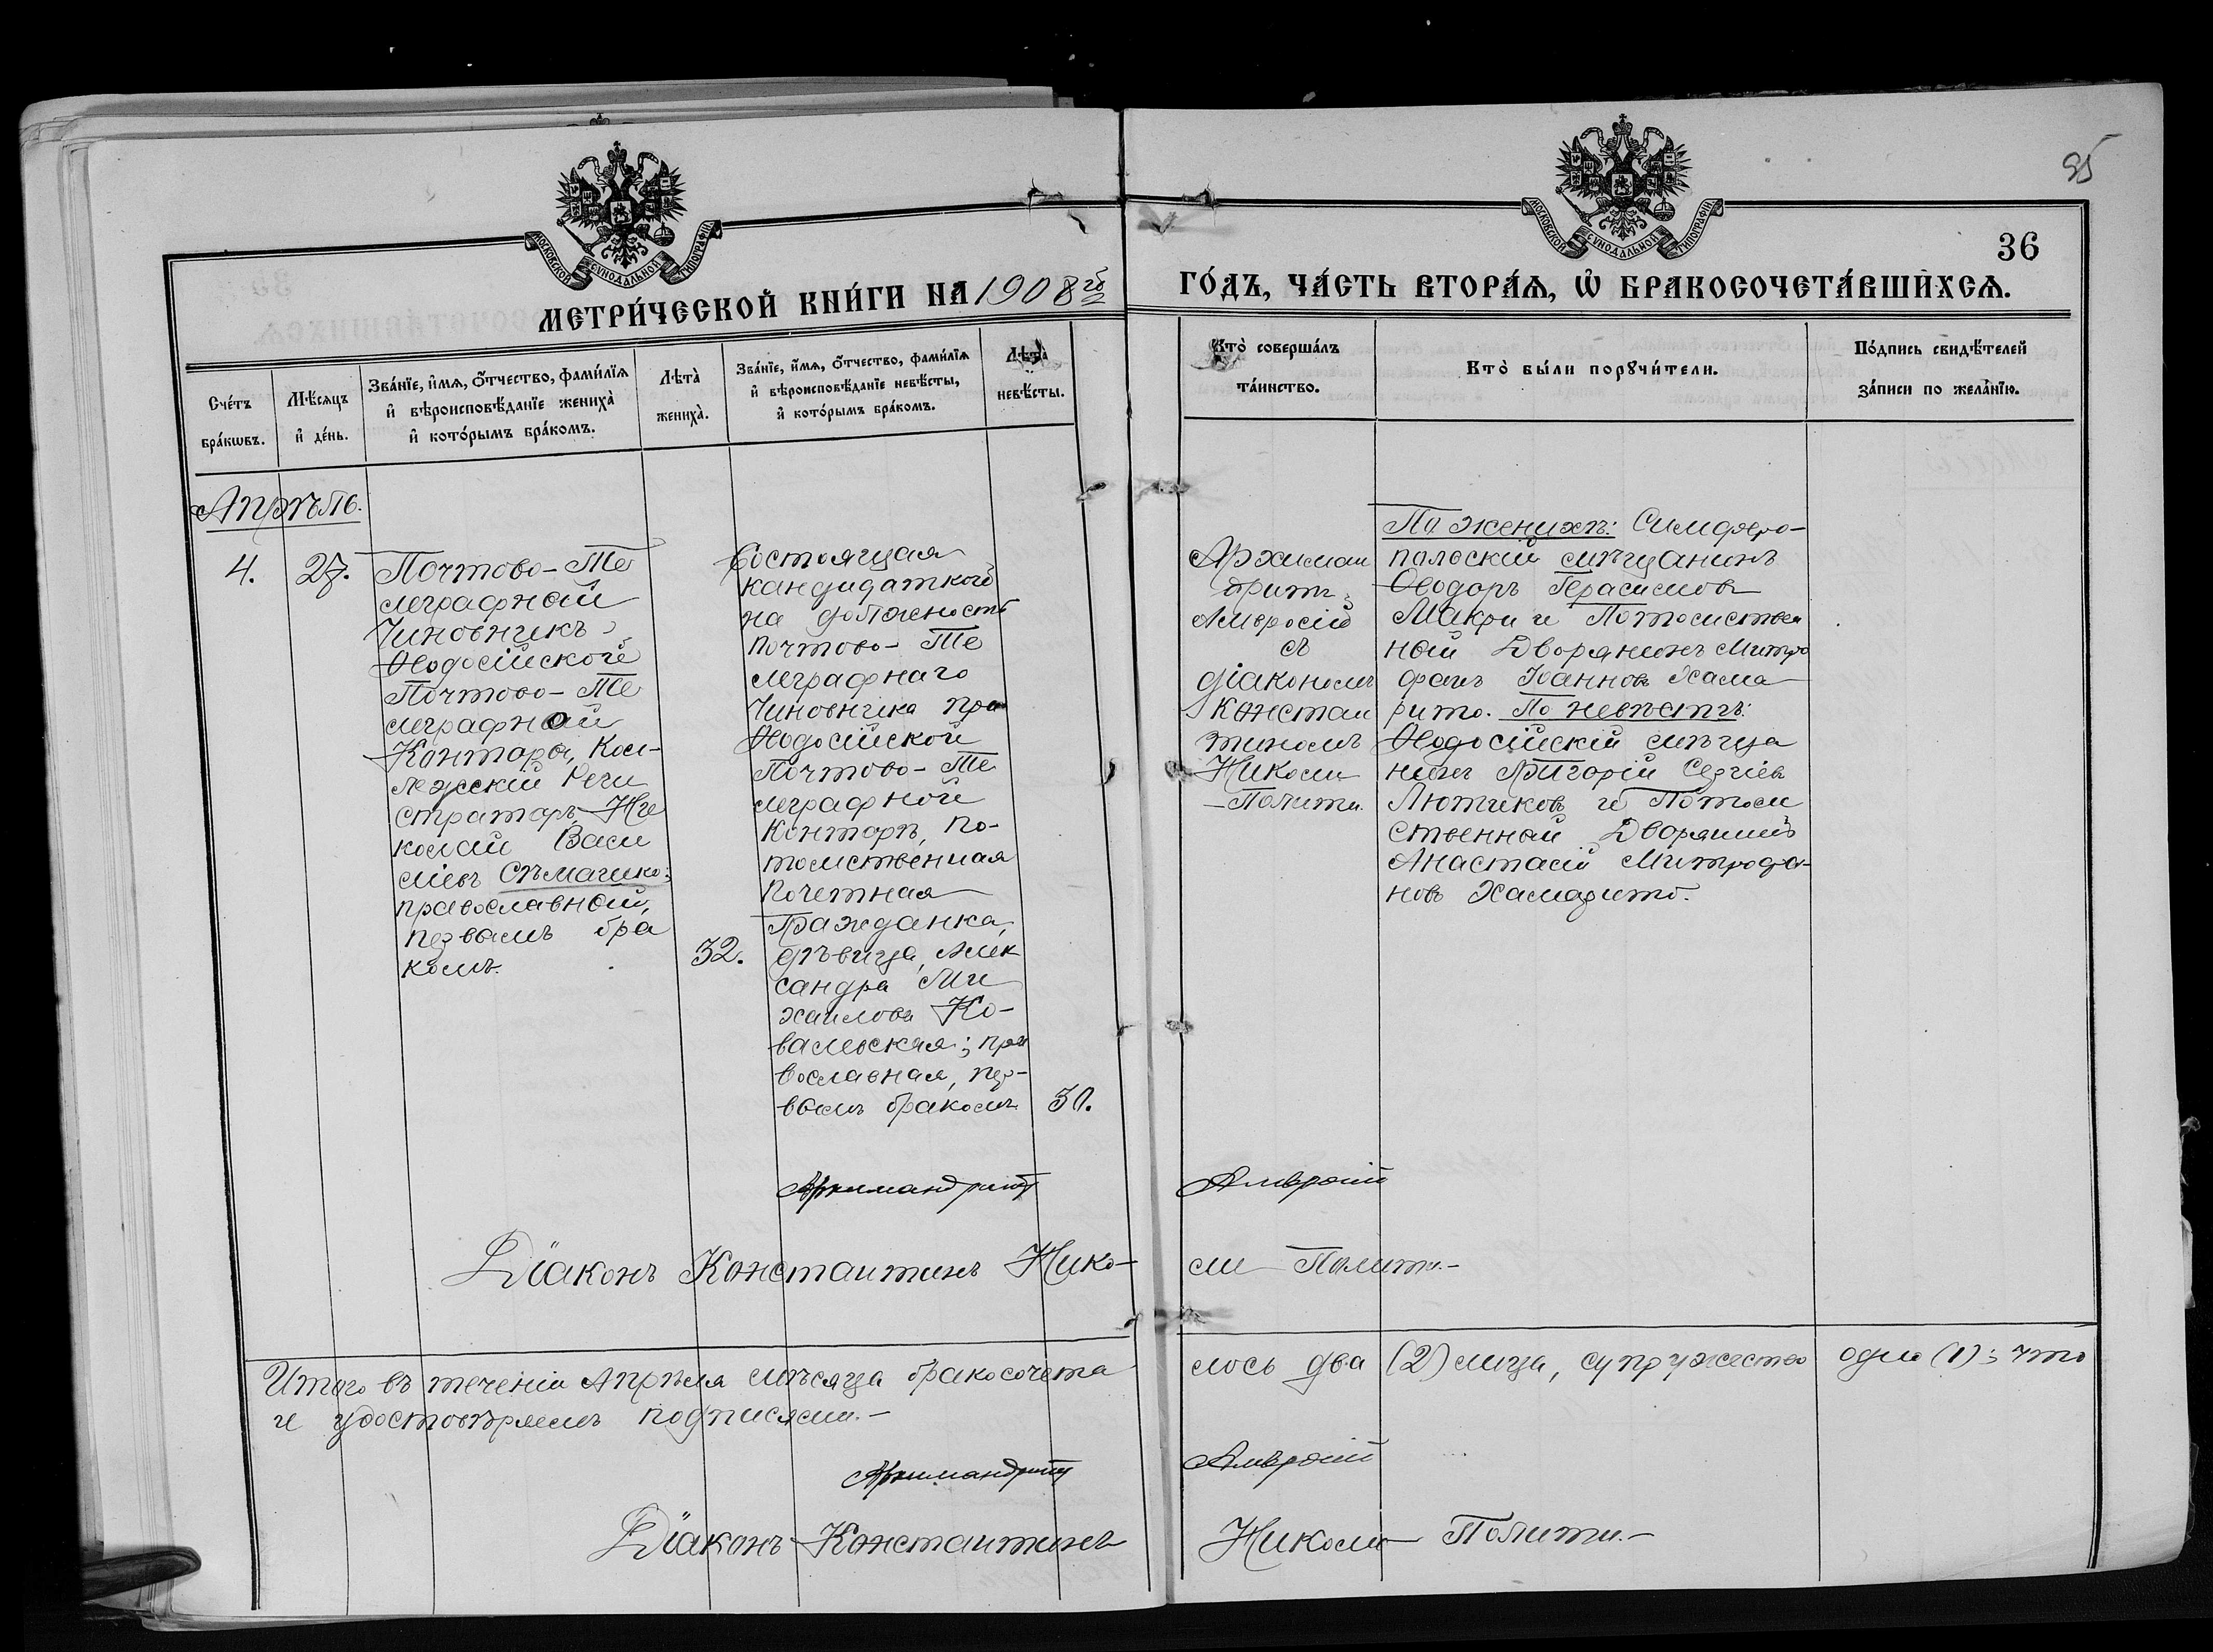 35
36
МОСКОВСКОЙ СѴНОДАЛЬНОЙ ТИПОГРАФІИ
МОСКОВСКОЙ СѴНОДАЛЬНОЙ ТИПОГРАФІИ
МЕТРИ́ЧЕСКОЙ КНИ́ГИ НА 1908 го́ ГО́ДЪ, ЧА́СТЬ ВТОРА́Ѧ, Ѡ҆ БРАКОСОЧЕТА́ВШИХСѦ.
Сче́тъ
бра́кѡвъ.
Мѣ́сяцъ
и҆ де́нь.
Зва́нїе, и҆́мѧ, ѻ҆́тчество, фами́лїѧ
и҆ вѣроисповѣ́данїе жениха̀
и҆ кото́рымъ бра́комъ.
Лѣта̀
жениха̀.
Зва́нїе, и҆́мѧ, ѻ҆́тчество, фами́лїѧ
и҆ вѣроисповѣ́данїе невѣ́сты,
и҆ кото́рымъ бра́комъ.
Лѣта̀
невѣ́сты.
Кто̀ соверша́лъ
та́инство.
Кто̀ бы́ли порꙋчи́тели.
По́дпись свидѣ́телей
за́писи по жела́нїю.
Апрѣль.
4.
27.
Почтово-Те
леграфный
Чиновникъ
Ѳеодосійской
Почтово-Те
леграфной
Конторы, Кол-
лежскій Реги
страторъ, Ни
колай Васи
ліевъ Сѣмашко;
православный,
первымъ бра
комъ.
32.
Состоящая
кандидаткой
на должность
Почтово-Те
леграфнаго
Чиновника при
Ѳеодосійской
Почтово-Те
леграфной
Конторѣ, по-
томственная
Почетная
Гражданка,
дѣвица, Алек
сандра Ми
хаилова Ко-
вальская; пра
вославная, пер-
вымъ бракомъ
30.
Архиман
дритъ
Амвросій
съ
діакономъ
Констан
тиномъ
Николи
-Полити.
По женихѣ: Симферо-
польскій мѣщанинъ
Ѳеодоръ Герасимовъ
Макри и Потомствен
ный Дворянинъ Митро
фанъ Іоанновъ Хама
рито. По невѣстѣ:
Ѳеодосійскій мѣща
нинъ Григорій Сергіевъ
Лютиковъ и Потом
ственный Дворянинъ
Анастасій Митрофа-
новъ Хамарито.
Архимандритъ Амвросій
Діаконъ Константинъ Нико-ли Полити.-
Итого въ теченіи Апрѣля мѣсяца бракосочета лось два (2) лица, супружество одно (1); что
и удостовѣряемъ подписями.-
Архимандритъ Амвросій
Діаконъ Константинъ Николи Полити.-